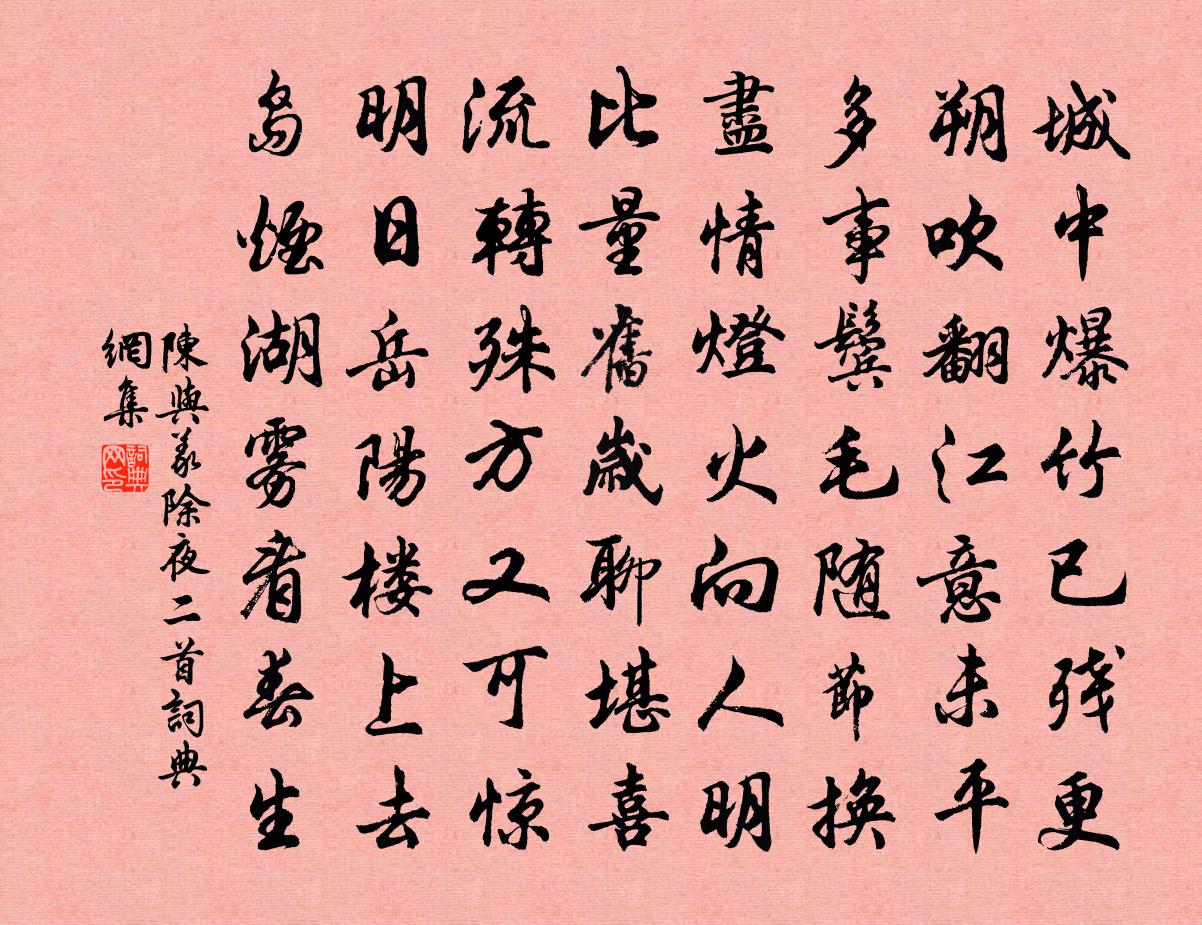 城中爆竹已残更
朔吹翻江意未平
多事鬓毛随節換
盡情燈火向人明
比量舊歲聊堪喜
流轉殊方又可惊
明日岳陽楼上去
島煙湖雾看春生
陳與義除夜二首詞典
網集
詞典网印